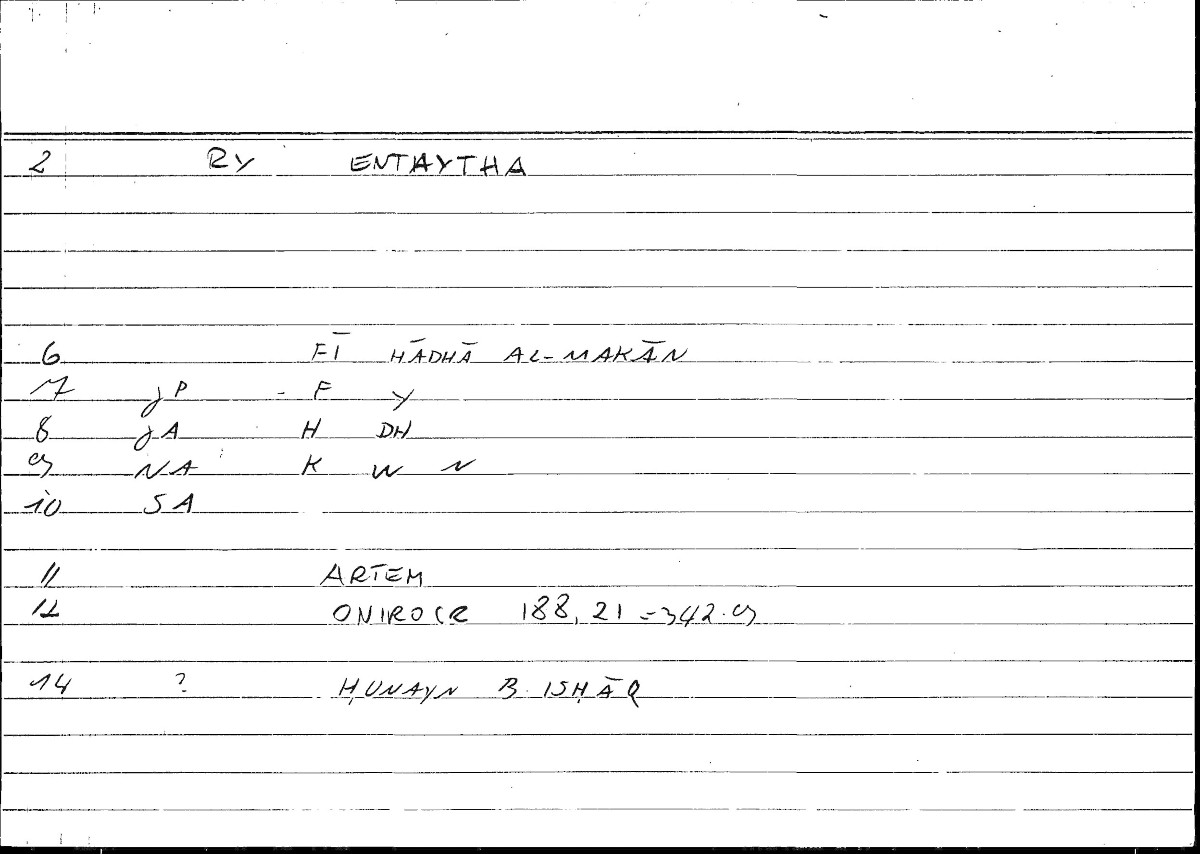 2 RY ENTAYTHA
6 FĪ HĀDHĀ AL-MAKĀN
7 JP - F Y
8 JA H DH
9 NA K W N
10 SA
11 ARTEM
12 ONIROCR 188, 21 = 342.9
14 ? ḤUNAYN B. ISḤĀQ